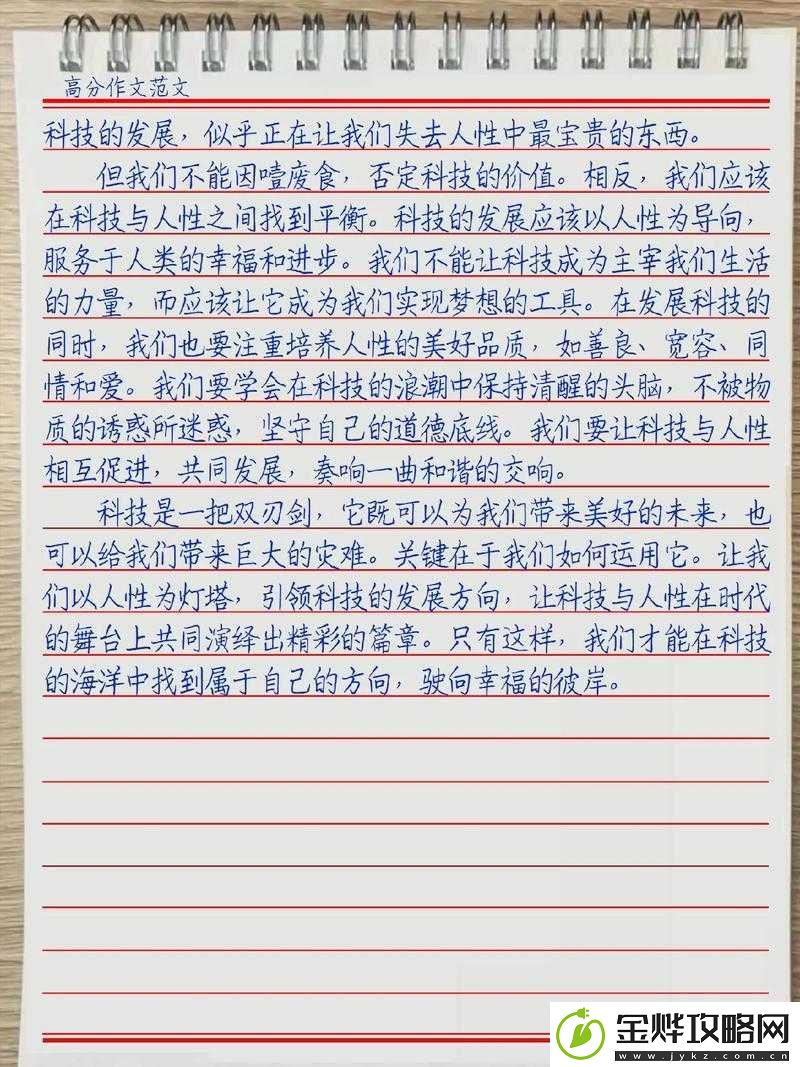 高分作文范文
科技的发展，似乎正在让我们失去人性中最宝贵的东西。
但我们不能因噎废食，否定科技的价值。相反，我们应该
在科技与人性之间找到平衡。科技的发展应该以人性为导向，
服务于人类的幸福和进步。我们不能让科技成为主宰我们生活
的力量，而应该让它成为我们实现梦想的工具。在发展科技的
同时，我们也要注重培养人性的美好品质，如善良、宽容、同
情和爱。我们要学会在科技的浪潮中保持清醒的头脑，不被物
质的诱惑所迷惑，坚守自己的道德底线。我们要让科技与人性
相互促进，共同发展，奏响一曲和谐的交响。
科技是一把双刃剑，它既可以为我们带来美好的未来，也
可以给我们带来巨大的灾难。关键在于我们如何运用它。让我
们以人性为灯塔，引领科技的发展方向，让科技与人性在时代
的舞台上共同演绎出精彩的篇章。只有这样，我们才能在科技
的海洋中找到属于自己的方向，驶向幸福的彼岸。
金烨攻略网
www.jykz.com.cn